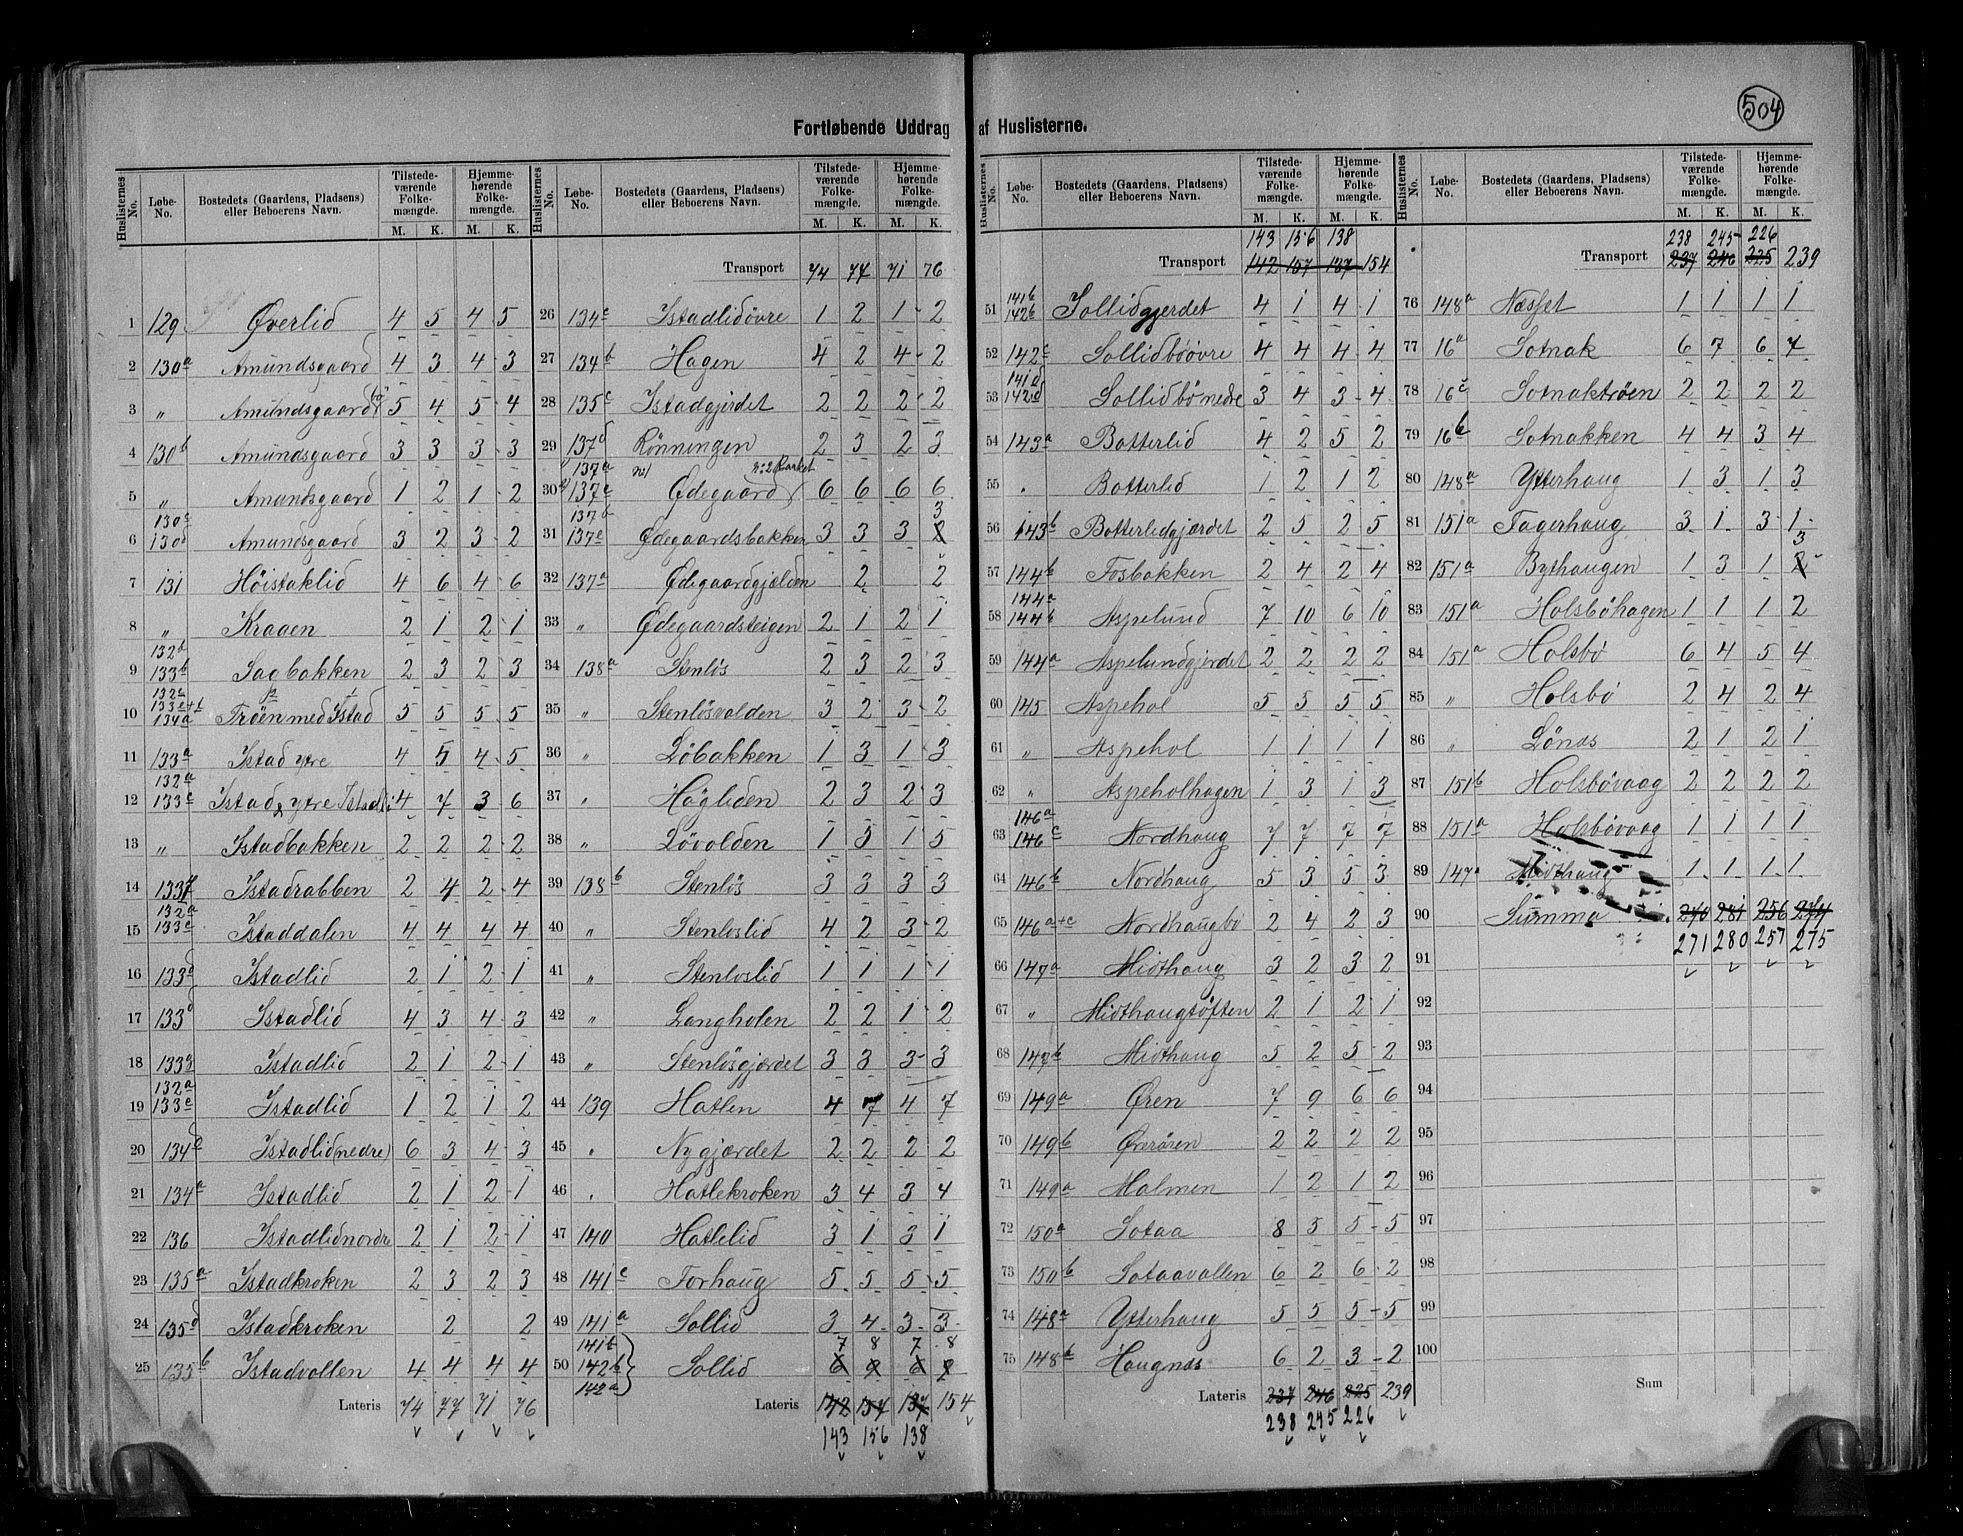 504
Fortløbende Uddrag af Huslisterne.
Huslisternes No. Løbe-No. Bostedets (Gaardens, Pladsens) eller Beboerens Navn. Tilstedeværende Folkemængde. M. K. Hjemmehørende Folkemængde. M. K.
1 129 Øverlid 4 5 4 5
2 130a Amundsgaard 4 3 4 3
3 " Amundsgaard 5 4 5 4
4 130b Amundsgaard 3 3 3 3
5 " Amundsgaard 1 2 1 2
6 130c 130d Amundsgaard 3 2 3 2
7 131 Höistaklid 4 6 4 6
8 " Kraaen 2 1 2 1
9 132b 133b Sagbakken 2 3 2 3
10 134a Tröen med Istad 5 5 5 5
11 133a Istad ytre 4 5 4 5
12 132a 133c Istad ytre 4 7 3 6
13 " Istadbakken 2 2 2 2
14 133f Istadrabben 2 4 2 4
15 132a 133c Istaddalen 4 4 4 4
16 133d Istadlid 2 1 2 1
17 133d Istadlid 4 3 4 3
18 133g Istadlid 2 1 2 1
19 132a 133e Istadlid 1 2 1 2
20 134d Istadlid (nedre) 6 3 4 3
21 134a Istadlid 2 1 2 1
22 136 Istadlidnordre 2 1 2 1
23 135a Istadkroken 2 3 2 3
24 135d Istadkroken 2 2
25 135b Istadvollen 4 4 4 4
Lateris 74 77 71 76
Huslisternes No. Løbe-No. Bostedets (Gaardens, Pladsens) eller Beboerens Navn. Tilstedeværende Folkemængde. M. K. Hjemmehørende Folkemængde. M. K.
Transport 74 77 71 76
26 134c Istadlidövre 1 2 1 2
27 134b Hagen 4 2 4 2
28 135c Istadgjerdet 2 2 2 2
29 137d Rönningen 2 3 2 3
30 137a 137c Ødegaard 6 6 6 6
31 137d 137e Ødegaardsbakken 3 3 3 3
32 137a Ødegaardgjælden 2 2
33 " Ødegaardsteigen 2 1 2 1
34 138a Stenlös 2 3 2 3
35 " Stenlösvolden 3 2 3 2
36 " Löbakken 1 3 1 3
37 " Högliden 2 3 2 3
38 " Lövolden 1 5 1 5
39 138b Stenlös 3 3 3 3
40 " Stenloslid 4 2 3 2
41 " Stenloslid 1 1 1 1
42 " Langholen 2 2 1 2
43 " Stenlösgjærdet 3 3 3 3
44 139 Hatlen 4 7 4 7
45 " Nygjærdet 2 2 2 2
46 " Hatlekroken 3 4 3 4
47 140 Hatlelid 3 1 3 1
48 141c Forhaug 5 5 5 5
49 141a Sollid 3 4 3 3
50 141b 142b 142a Sollid 7 8 7 8
Lateris 142 157 137 154
143 156 138
Huslisternes No. Løbe-No. Bostedets (Gaardens, Pladsens) eller Beboerens Navn. Tilstedeværende Folkemængde. M. K. Hjemmehørende Folkemængde. M. K.
143 156 138
Transport 142 157 137 154
51 141b 142b Sollidgjerdet 4 1 4 1
52 142c Sollidböövre 4 4 4 4
53 141d 142d Sollidbönedre 3 4 3 4
54 143a Botterlid 4 2 5 2
55 " Botterlid 1 2 1 2
56 143b Botterlidgjærdet 2 5 2 5
57 144b Fosbakken 2 4 2 4
58 144a 144b Aspelund 7 10 6 10
59 144a Aspelundgjerdet 2 2 2 2
60 145 Aspehol 5 5 5 5
61 " Aspehol 1 1 1 1
62 " Aspeholhagen 1 3 1 3
63 146a 146c Nordhaug 7 7 7 7
64 146b Nordhaug 5 3 5 3
65 146a+c Nordhaugbö 2 4 2 3
66 147a Midthaug 3 2 3 2
67 " Midthaugtöften 2 1 2 1
68 147b Midthaug 5 2 5 2
69 149a Ören 7 9 6 6
70 149b Örerören 2 2 2 2
71 149a Malmen 1 2 1 2
72 150a Sotaa 8 5 5 5
73 150b Sotaavollen 6 2 6 2
74 148a Ytterhaug 5 5 5 5
75 148b Haugnæs 6 2 3 2
Lateris 237 246 225 239
238 245 226
Huslisternes No. Løbe-No. Bostedets (Gaardens, Pladsens) eller Beboerens Navn. Tilstedeværende Folkemængde. M. K. Hjemmehørende Folkemængde. M. K.
238 245 226
Transport 237 246 225 239
76 148a Næsset 1 1 1 1
77 16a Sotnak 6 7 6 7
78 16c Sotnaktröen 2 2 2 2
79 16b Sotnakken 4 4 3 4
80 148a Ytterhaug 1 3 1 3
81 151a Fagerhaug 3 1 3 1
82 151a Bythaugen 1 3 1 3
83 151a Holsböhagen 1 1 1 2
84 151a Holsbö 6 4 5 4
85 " Holsbö 2 4 2 4
86 " Lönæs 2 1 2 1
87 151b Holsbövaag 2 2 2 2
88 151a Holsbövaag 1 1 1 1
89 147a Midthaug 1 1 1 1
90 Summa 270 281 256 274
271 280 257 275
91
92
93
94
95
96
97
98
99
100
Sum